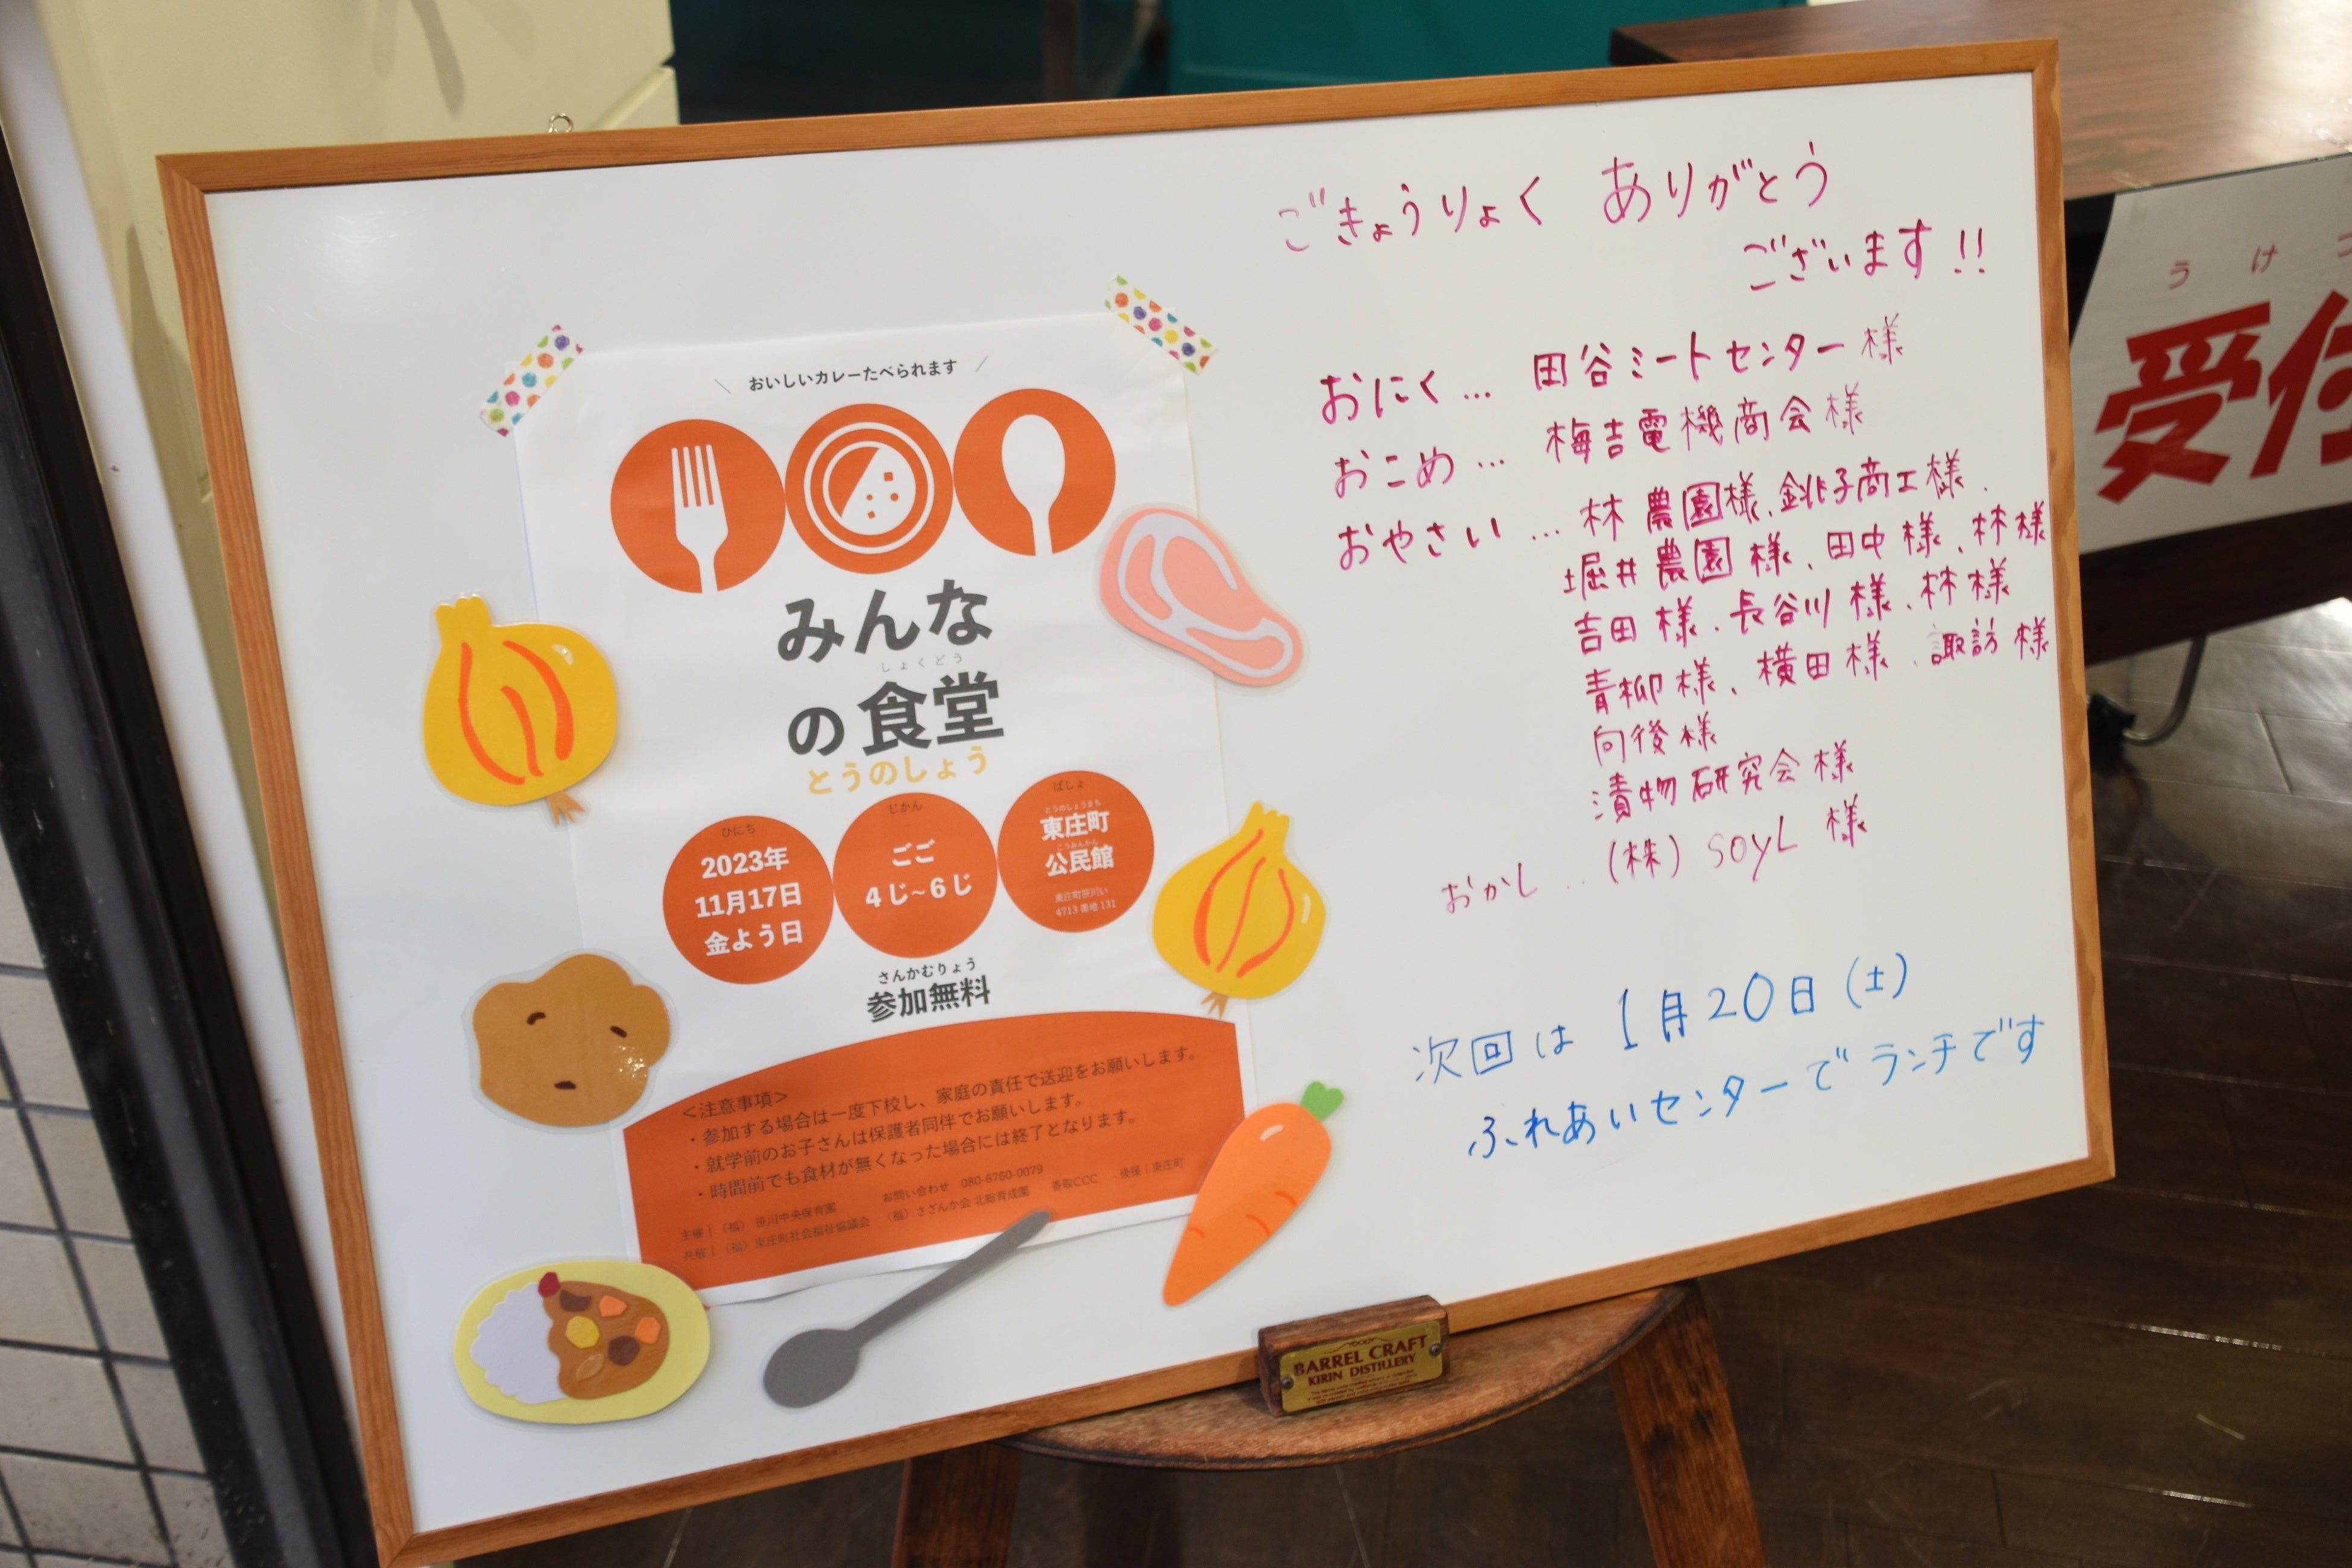 おいしいカレーたべられます
みんな
しょくどう
の食堂
とうのしょう
ひにち
2023年
11月17日
金よう日
じかん
ごご
4じ~6じ
ばしょ
とうのしょうまち
東庄町
こうみんかん
公民館
東庄町笹川い
4713番地131
さんかむりょう
参加無料
<注意事項>
・参加する場合は一度下校し、家庭の責任で送迎をお願いします。
・就学前のお子さんは保護者同伴でお願いします。
・時間前でも食材が無くなった場合には終了となります。
お問い合わせ 080-6760-0079
主催|(福)笹川中央保育園
共催|(福)東庄町社会福祉協議会 (福)さざんか会 北総育成園 香取CCC 後援|東庄町
ごきょうりょく ありがとう
ございます!!
おにく… 田谷ミートセンター様
おこめ… 梅吉電機商会様
おやさい…林農園様、銚子商工様、
堀井農園様、田中様、林様
吉田様、長谷川様、林様
青柳様、横田様、諏訪様
向後様
漬物研究会様
おかし…(株)SOYL様
次回は 1月20日(土)
ふれあいセンターでランチです
うけ
受付
BARREL CRAFT
KIRIN DISTILLERY